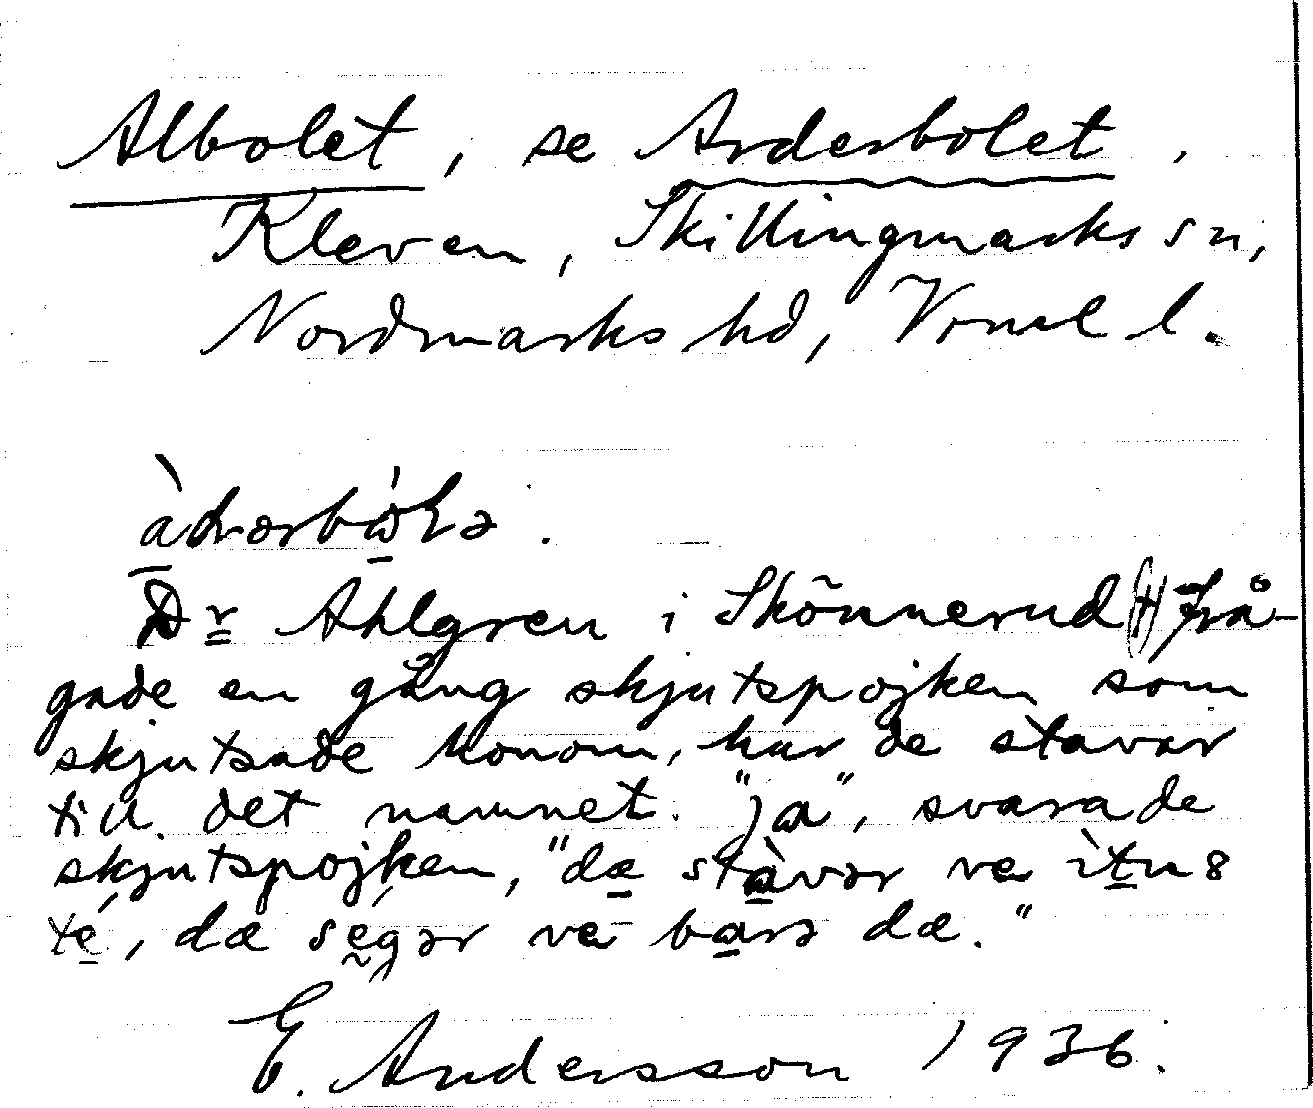 Albolet, se Arderbolet,
Kleven, Skillingmarks sn,
Nordmarks hd, Vrml l.
Dr Ahlgren i Skönnerud (H) frå-
gade en gång skjutspojken som
skjutsade honom, hur de stavar
till det namnet. "ja", svarade
skjutspojken, "dæ stàvər ve ìtu
té, dæ ség̣ər ve barə dæ."
E. Andersson 1936.